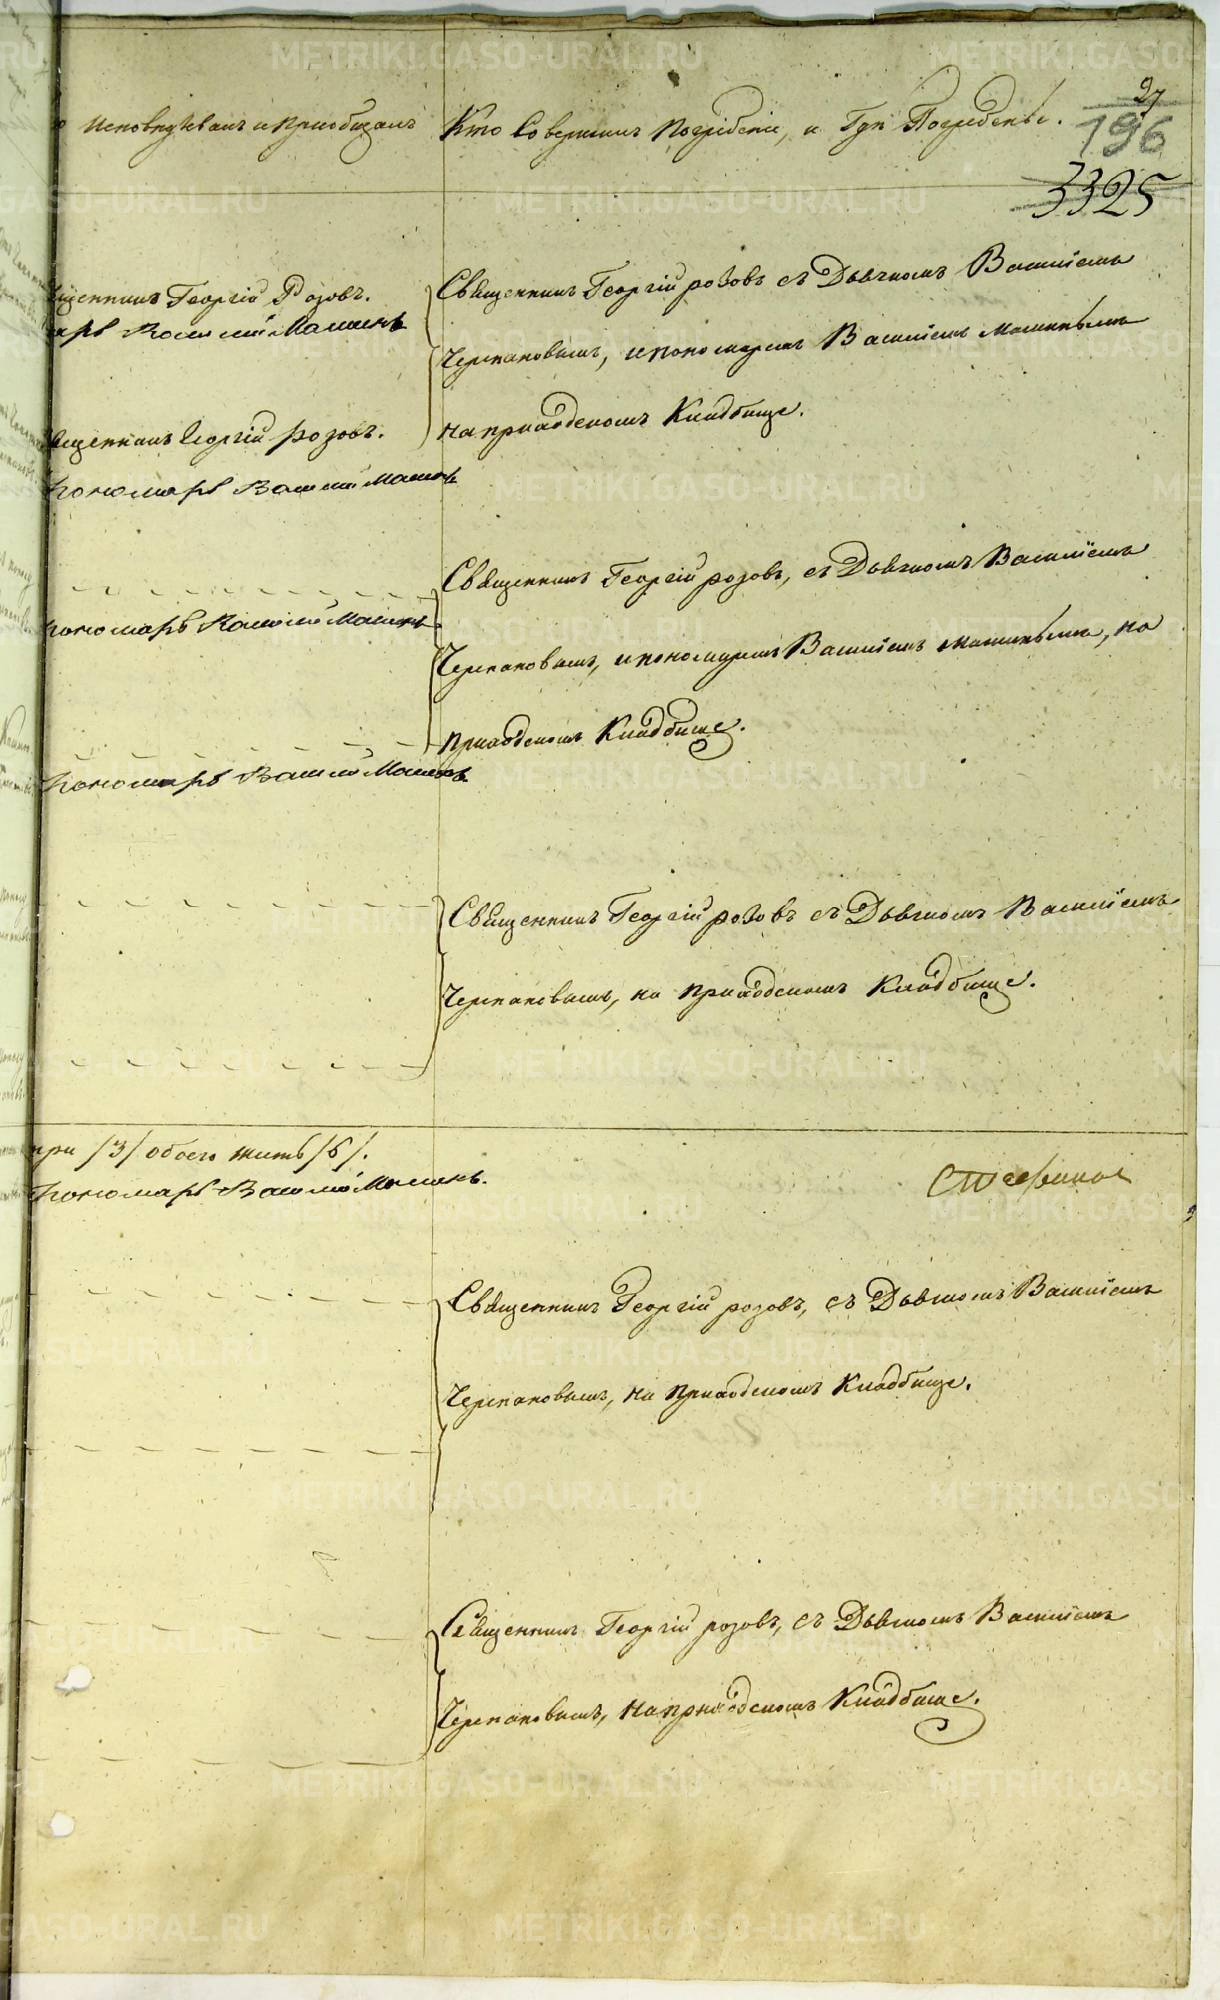 Исповѣдывалъ и Приобщалъ
Кто Совершилъ Погребеніе, и Гдѣ Погребены.
27
196
3325
Священникъ Георгій Розовъ съ Дьячкомъ Василіемъ
Черепановымъ, и пономаремъ Василіемъ
на приходскомъ Кладбище.
Георгій Розовъ.
Василій
Георгій розовъ.
Пономарь Василій
Священникъ Георгій розовъ, съ Дьячкомъ Василіемъ
Черепановымъ, и пономаремъ Василіемъ, на
приходскомъ Кладбище.
Пономарь Василій
Пономарь Василій
Священникъ Георгій розовъ съ Дьячкомъ Василіемъ
Черепановымъ, на приходскомъ Кладбище.
при /3/ обоего /6/.
Пономарь Василій
Священникъ Георгій розовъ, съ Дьячкомъ Василіемъ
Черепановымъ, на приходскомъ Кладбище.
Священникъ Георгій розовъ, съ Дьячкомъ Василіемъ
Черепановымъ, на приходскомъ Кладбище.
METRIKI.GASO-URAL.RU